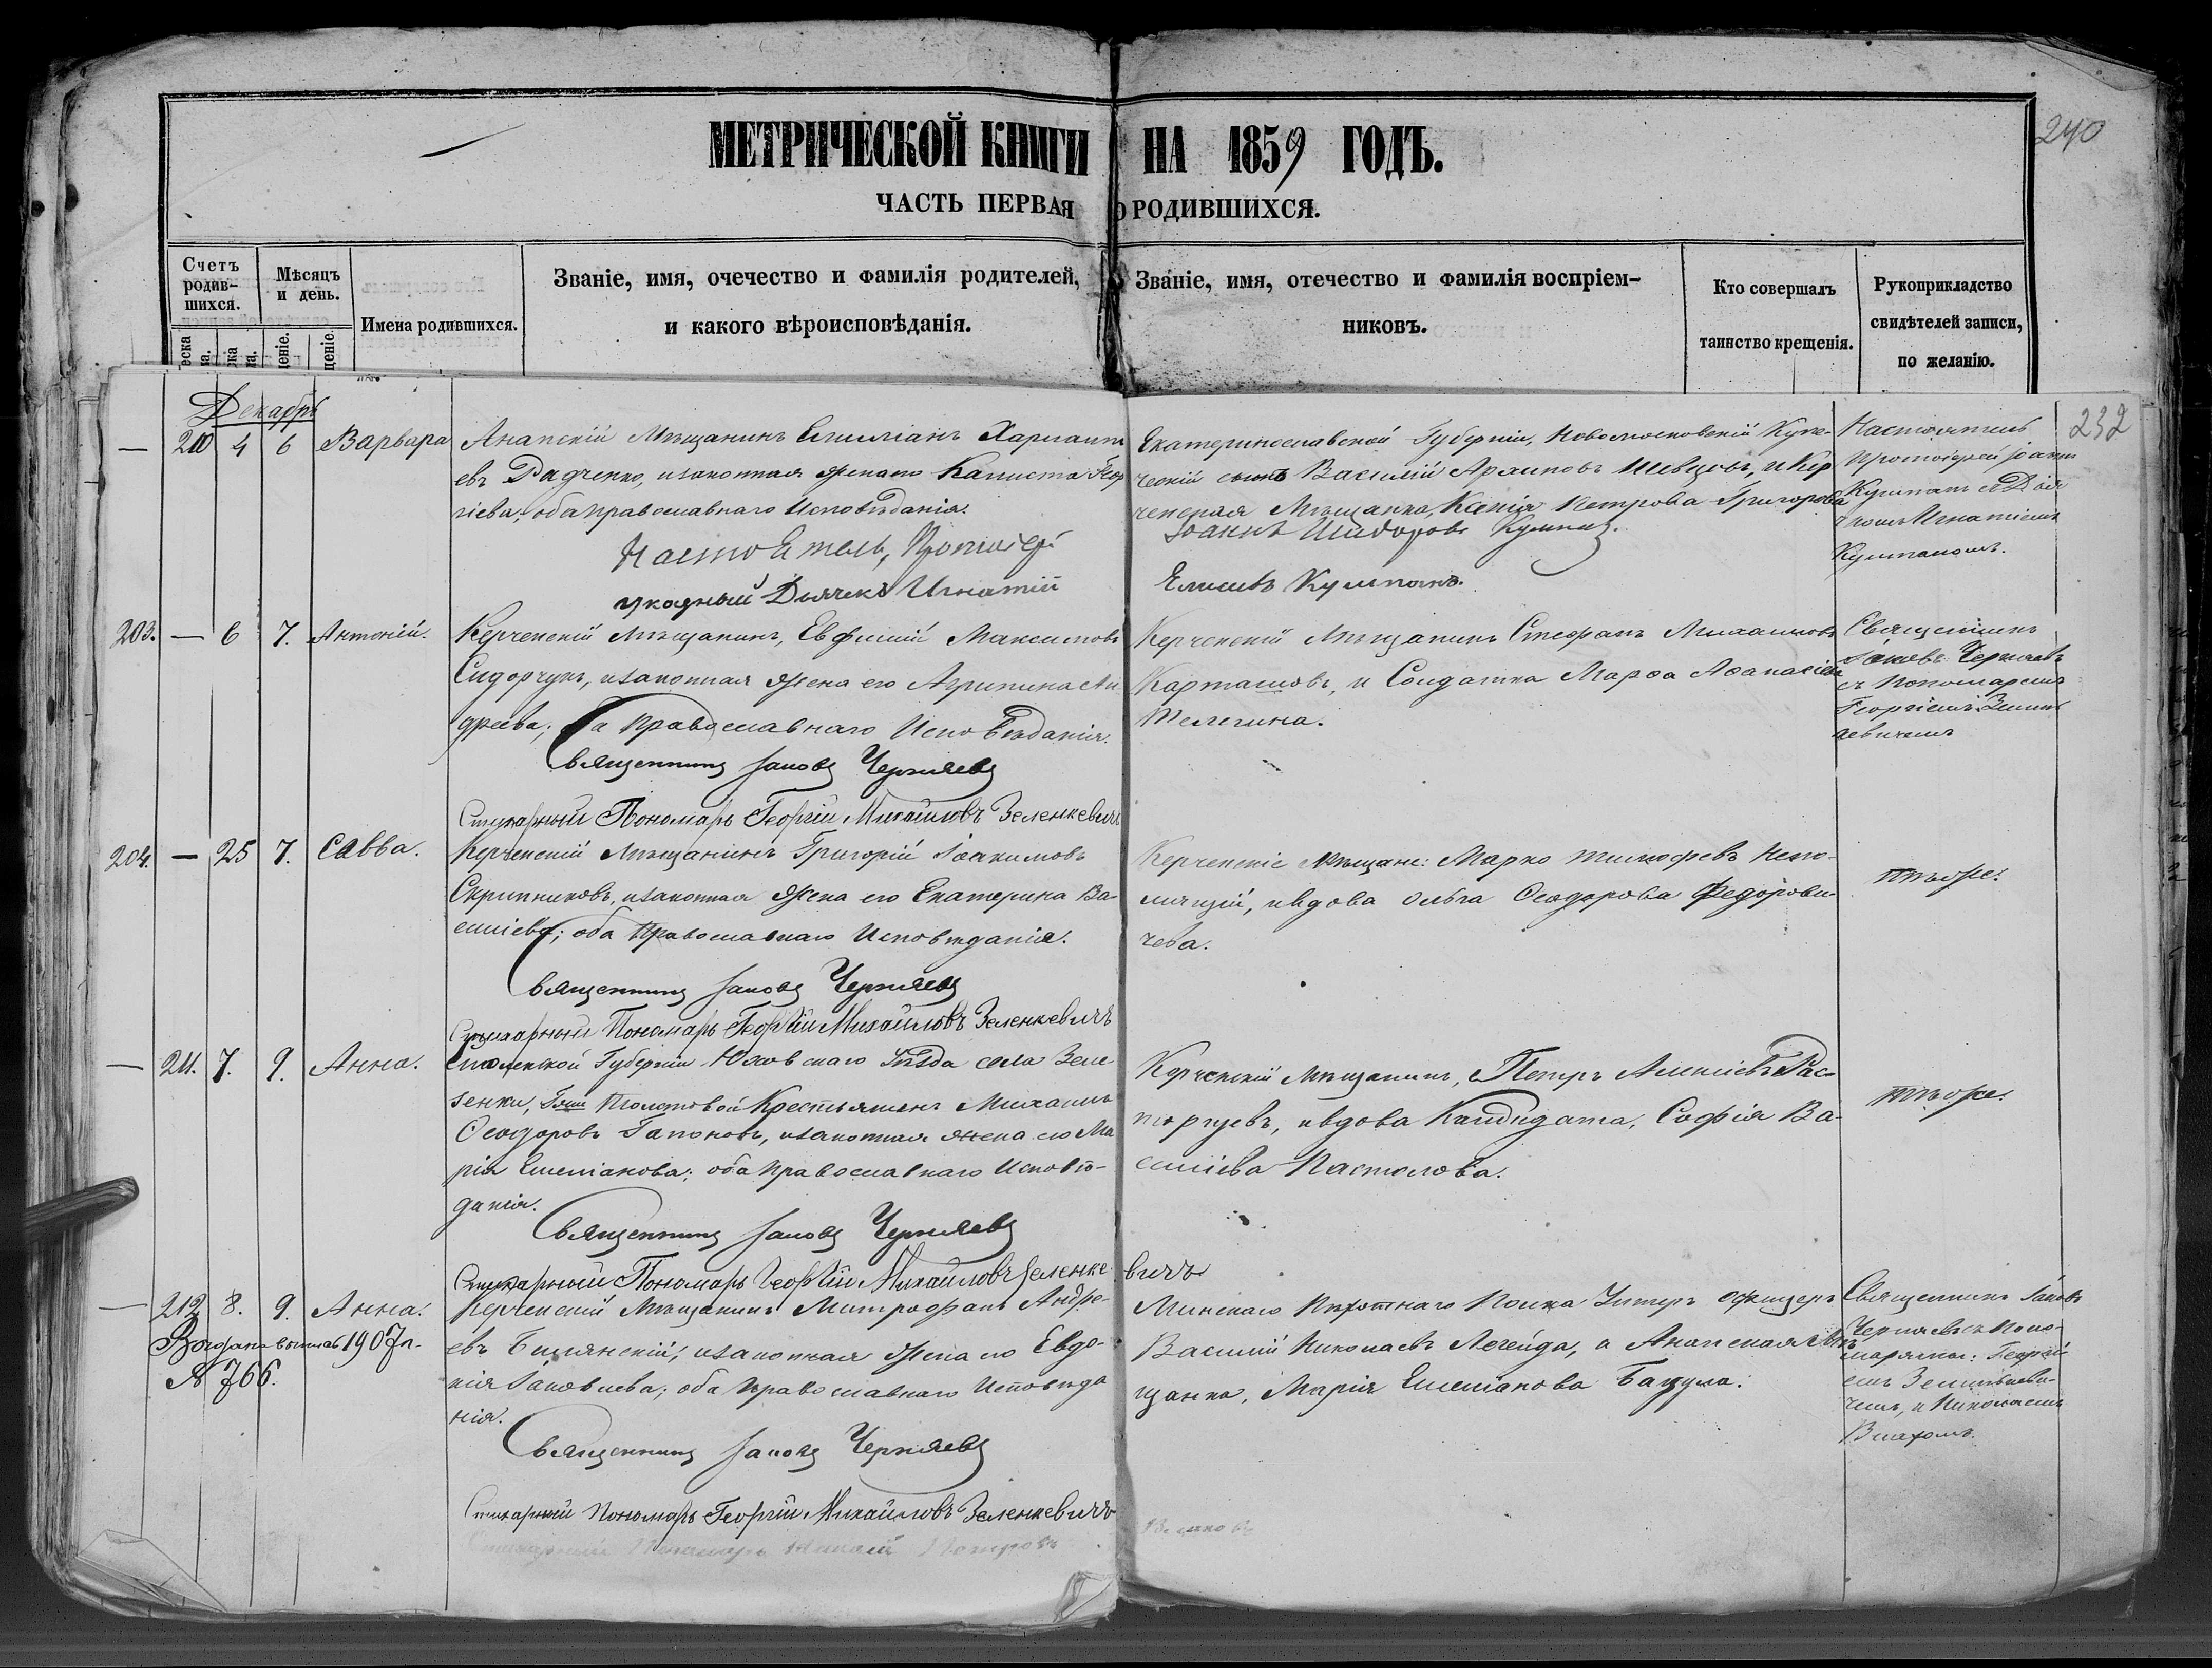 МЕТРИЧЕСКОЙ КНИГИ НА 1859 ГОДЪ.
240
ЧАСТЬ ПЕРВАЯ О РОДИВШИХСЯ.
Счетъ родив-
шихся.
Мѣсяцъ
и день.
Имена родившихся.
Званіе, имя, очечество и фамилія родителей,
и какого вѣроисповѣданія.
Званіе, имя, отечество и фамилія воспріем-
никовъ.
Кто совершалъ
таинство крещенія.
Рукоприкладство
свидѣтелей записи,
по желанію.
Декабрь
232
— 210 4 6 Варвара
Анапскій Мѣщанинъ Емиліанъ
евъ Радченко, и законная жена его
гіева; оба православнаго Исповѣданія.
Настоятель, Протоіерей
указный Дьячекъ Игнатій
Екатеринославской Губерніи, Новомосковскій Купе-
ческій сынъ Василій Архиповъ Шевцовъ, и Кер
ченская Мѣщанка, Ксенія Петрова Григорова
Іоаннъ
Настоятель
Протоіерей Іоаннъ
203. — 6 7. Антоній.
Керченскій Мѣщанинъ, Евфимій Максимовъ
Сидорчукъ, и законная жена его Агрипина Ан
дреева; оба Православнаго Исповѣданія.
Священникъ Іаковъ Черняевъ
Стихарный Пономарь Георгій Михаиловъ Зеленкевичъ
Керченскій Мѣщанинъ Стефанъ Михаиловъ
Карташовъ, и Солдатка Марфа Афанасіева
Телегина.
Священникъ
Іаковъ Черняевъ
съ Пономаремъ
Георгіемъ Зелен
кевичемъ
204. — 25 7. Савва.
Керченскій Мѣщанинъ Григорій Іоакимовъ
Скрипниковъ, и законная жена его Екатерина Ва-
силіева; оба Православнаго Исповѣданія.
Священникъ Іаковъ Черняевъ
Стихарный Пономарь Георгій Михаиловъ Зеленкевичъ
Керченскіе Мѣщане: Марко Тимофеевъ Непо-
мящій, и вдова Ольга Феодорова Федорови-
чева.
тѣже.
— 211. 7. 9. Анна.
Смоленской Губерніи Юхновскаго Уѣзда села Зеле-
зенки, Гжи Толстовой Крестьянинъ Михаилъ
Феодоровъ Гапоновъ, и законная жена его Ма
рія Емеліанова; оба православнаго Исповѣ-
данія.
Священникъ Іаковъ Черняевъ
Стихарный Пономарь Георгій Михаиловъ Зеленке
вичъ
Керченскій Мѣщанинъ, Петръ Алексіевъ Рас-
торгуевъ, и вдова Кандидата, Софія Ва-
силіева Пастолова.
тѣже.
— 212 8. 9. Анна.
1907 г.
№ 766.
Керченскій Мѣщанинъ Митрофанъ Андре-
евъ Билянскій, и законная жена его Евдо-
кія Іаковлева; оба Православнаго Исповѣда
нія.
Священникъ Іаковъ Черняевъ
Стихарный Пономарь Георгій Михайловъ Зеленкевичъ
Минскаго Пѣхотнаго Полка Унтеръ офицеръ
Василій Николаевъ Легейда, и Анапская Мѣ
щанка, Марія Емеліанова Бацула.
Священникъ Іаковъ
Черняевъ съ Поно-
марями: Георгі
емъ Зеленкеви-
чемъ, и Николаемъ